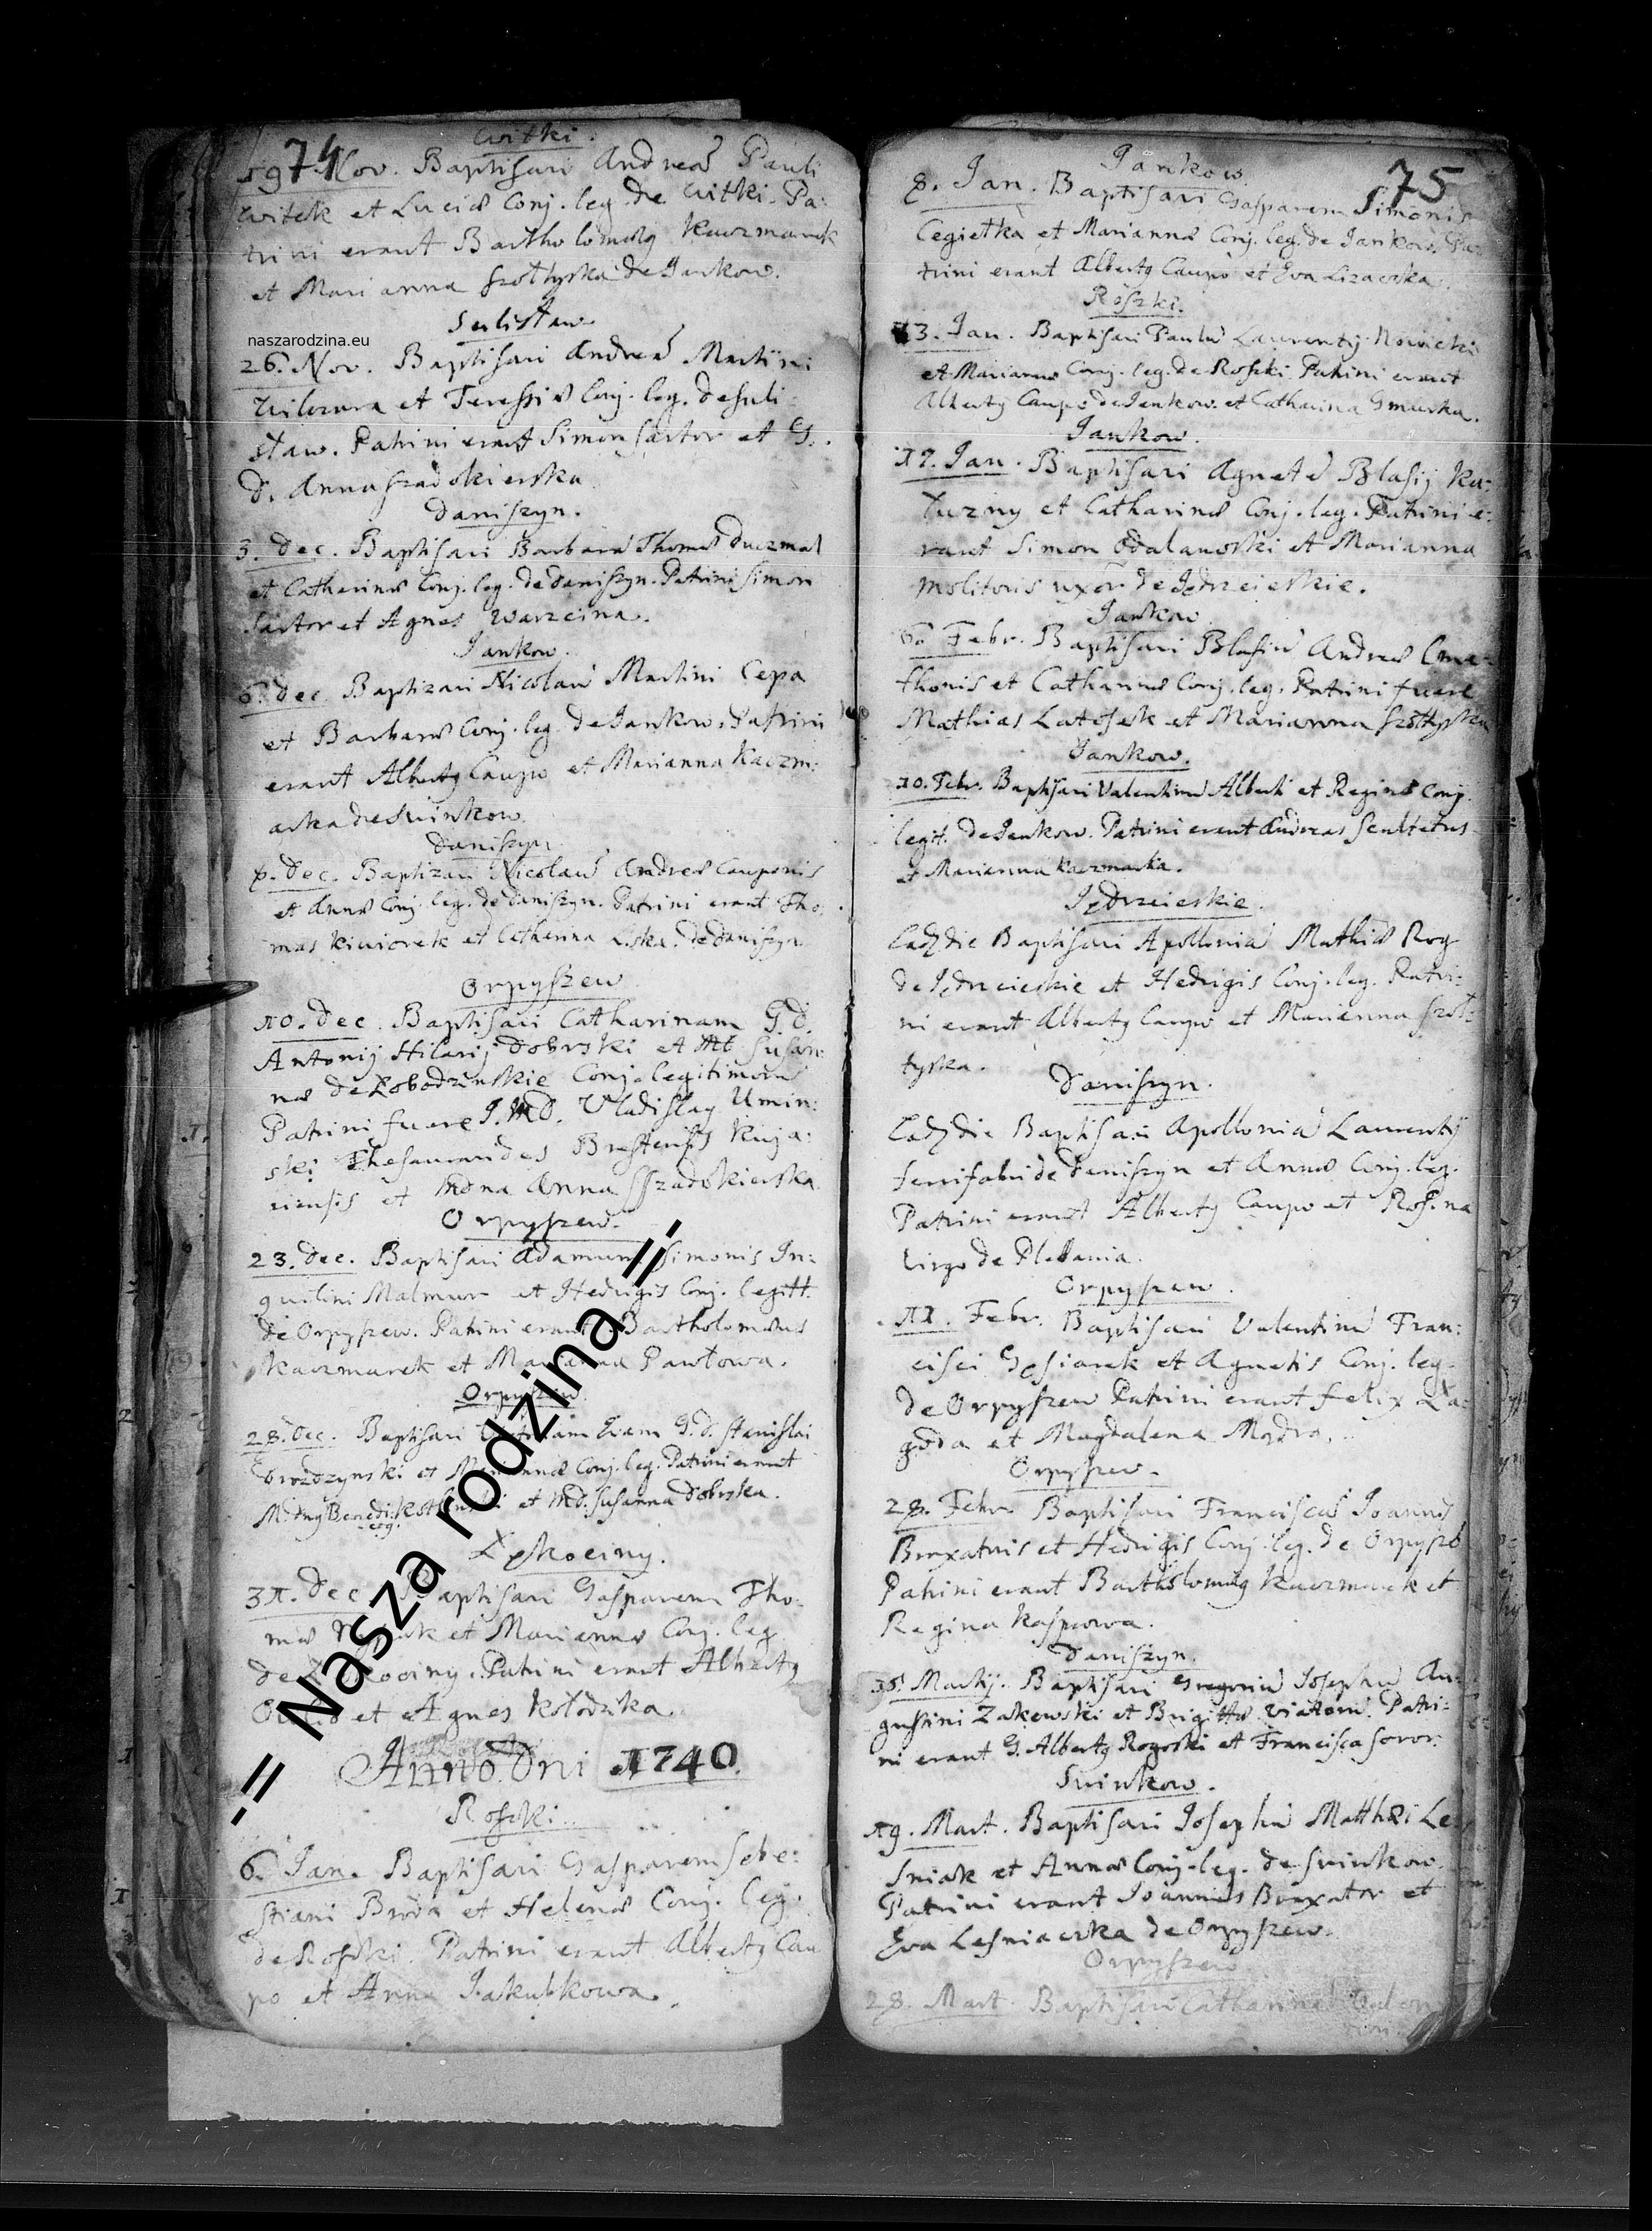 74
Witki.
19. Nov. Baptisavi Andreā Pauli
Witek et Luciæ Conj. leg. de Witki. Pa:
trini erant Bartholomæg Kaczmarek
et Marianna Szołtyska de Jankow.
Sulisław
naszarodzina.eu
26. Nov. Baptisavi Andreā Martini
et Teressiæ Conj. leg. de Suli:
sław. Patrini erant Simon Sartor et G.
D. Anna Szadokierska
Daniszyn.
3. Dec. Baptisavi Barbarā Thomæ Duczmal
et Catharinæ Conj. leg. de Daniszyn. Patrini Simon
Sartor et Agnes Warzcina.
Jankow.
6. Dec. Baptizavi Nicolaū Martini Cepa
et Barbaræ Conj. leg. de Jankow. Patrini
erant Albertg Caupo et Marianna Kaczm:
arka de Swinkow
Daniszyn
Dec. Baptizavi Nicolaū Andreæ Cauponis
et Annæ Conj. leg. de Daniszyn. Patrini erant Tho:
mas et Catharina de Daniszyn
Orpyszew
10. Dec. Baptisavi Catharinam G. D.
Antonij Hilarij Dobrski et Susan:
næ de Łobodzinskie Conj. legitimorū
Patrini fuere J. MD. Vladislag Umin:
ski Thesaurarides Brestensis Kuja:
viensis et Anna Szadokierska
Orpyszew.
23. Dec. Baptisavi Adamum Simonis In:
quilini Malmur et Hedvigis Conj. legitt.
de Orpyszew. Patrini erant Bartholomæus
Kaczmarek et Marianna Pawłowa.
Orpyszew
28. Dec. Baptisavi Evam G. D. Stanislai
Drozdzynski et Mariannæ Conj. leg. Patrini erant
et MD. Susanna Dobrska.
Łąkociny.
31. Dec. Baptisavi Gasparem Tho:
mæ et Mariannæ Conj. leg.
de Łąkociny. Patrini erant Albertg
et Agnes Kołodzka.
Anno Dni 1740.
Roszki
6. Jan. Baptisavi Gasparem Seba:
stiani Broda et Helenæ Conj. leg.
de Roszki. Patrini erant Albertg Cau
po et Anna Jakubkowa.
.= Nasza rodzina =.
75
Jankow.
8. Jan. Baptisavi Gasparem Simonis
Cegiełka et Mariannæ Conj. leg. de Jankow. Pa:
trini erant Albertg Caupo et Eva Lizacska.
Roszki.
13. Jan. Baptisavi Paulū Laurentij Nowicki
et Mariannæ Conj. leg. de Roszki. Patrini erant
Albertg Caupo de Jankow. et Catharina Gmurka.
Jankow.
17. Jan. Baptisavi Agnetē Blasij Ka:
łuzny et Catharinæ Conj. leg. Patrini e:
rant Simon Odalanowski et Marianna
Molitoris uxor de Jędrzeieskie.
Jankow
6. Febr. Baptisavi Blasiū Andreæ Cma:
thonis et Catharinæ Conj. leg. Patrini fuere
Mathias Latosek et Marianna Szołtyska
Jankow.
10. Febr. Baptisavi Valentinū Alberti et Reginæ Conj.
legit. de Jankow. Patrini erant Andreas Scultetus
et Marianna Kaczmarka.
Jędrzeieskie.
Eadē die Baptisavi Apolloniā Mathiæ Rog
de Jędrzeieskie et Hedvigis Conj. leg. Patri:
ni erant Albertg Caupo et Marianna Szoł:
tyska.
Daniszyn.
Eadē die Baptisavi Apolloniā Laurentij
Ferrifabri de Daniszyn et Annæ Conj. leg.
Patrini erant Albertg Caupo et Rosina
Virgo de Plebania.
Orpyszew.
11. Febr. Baptisavi Valentinū Fran:
cisci Gęsiorek et Agnetis Conj. leg.
de Orpyszew Patrini erant Felix Ła:
goda et Magdalena Mądra.
Orpyszew.
28. Febr. Baptisavi Franciscā Joannis
Braxatoris et Hedvigis Conj. leg. de Orpysze
Patrini erant Bartholomæg Kaczmarek et
Regina Kasprowa.
Daniszyn.
Martij. Baptisavi Gregoriū Josephū Au:
gustini Zakewski et Brigittæ Viatorū. Patri:
ni erant G. Albertg Rogoski et Francisca soror.
Swinkow.
19. Mart. Baptisavi Josephū Matthæi Le
sniak et Annæ Conj. leg. de Swinkow.
Patrini erant Joannes Braxator et
Eva Lesniaczka de Orpyszew.
Orpyszew
28. Mart. Baptisavi Catharinā Valen